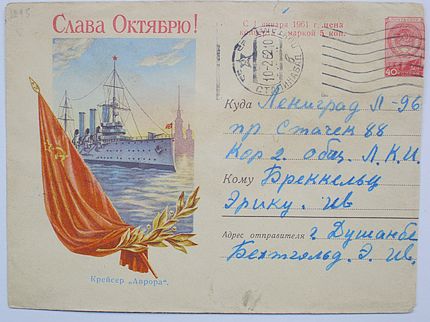 Слава Октябрю!
С 1 января 1961 г. цена
маркой 4 коп.
10-2-62
40
Куда Ленинград Л-96
пр. Стачек 88
Кор 2. Общ. Л.К.И.
Кому Бреннельц
Эрику. Ив
Адрес отправителя г. Душанбе
Бехтгольд. Э. Ив.
Крейсер „Аврора".